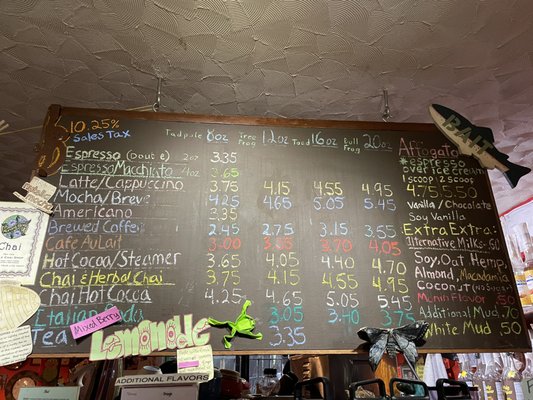 10.25%
Sales Tax
Tadpole 8oz Tree Frog 12oz Toad 16oz Bull Frog 20oz
Espresso (Double) 2oz 3.35
Espresso Macchiato 4oz 3.65
Latte/Cappuccino 3.75 4.15 4.55 4.95
Mocha/Breve 4.25 4.65 5.05 5.45
Americano 3.35
Brewed Coffee 2.45 2.75 3.15 3.55
Cafe Au Lait 3.00 3.35 3.70 4.05
Hot Cocoa/Steamer 3.65 4.05 4.40 4.70
Chai & Herbal Chai 3.75 4.15 4.55 4.95
Chai Hot Cocoa 4.25 4.65 5.05 5.45
Italian Soda 3.05 3.40 3.75
Tea 3.35
Lemonade
Mixed Berry
Chai
BAIT
Affogato
*espresso
over ice cream
1 scoop 2 scoops
4.75 5.50
Vanilla / Chocolate
Soy Vanilla
Extra Extra:
Alternative Milks
Soy, Oat, Hemp
Almond, Macadamia
Coconut (no sugar)
Additional .70
White Mud .50
ADDITIONAL FLAVORS